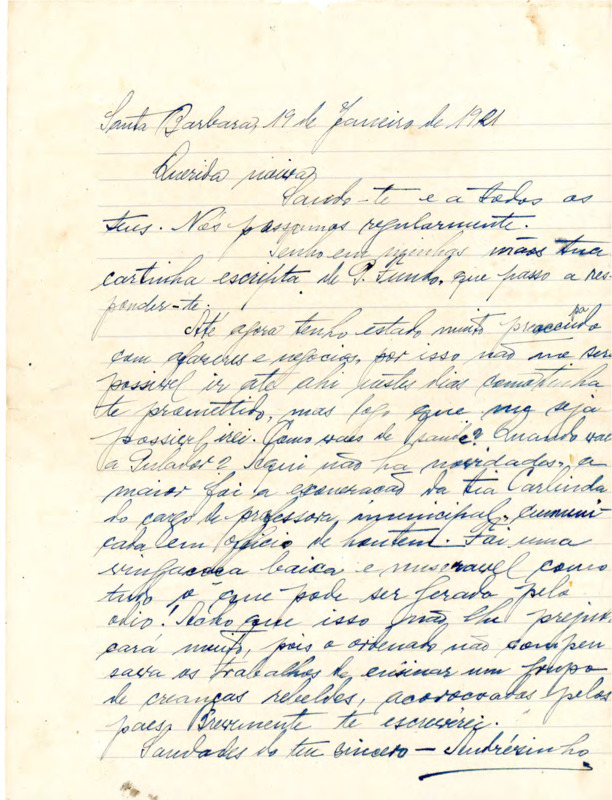 Santa Barbara, 19 de Janeiro de 1921
Querida noiva
Saudo-te e a todos os
teus. Nós passamos regularmente.
Tenho em minhas mãos tua
cartinha escripta de P. Fundo, que passo a res-
ponder-te.
Até agora tenho estado muito preoccupado
com afazeres e negocios, por isso não me ser
possivel ir até ahi nestes dias como tinha
te promettido, mas logo que me seja
possivel irei. Como vaes de saude? Quando vaes
a Pulador? Aqui não ha novidades, a
maior foi a exoneração da tia Carlinda
do cargo de professora municipal, cumuni-
cada em officio de hontem. Foi uma
vingança baixa e miseravel como
tudo o que pode ser gerado pelo
odio! Acho que isso não lhe prejudi-
cará muito, pois o ordenado não compen
sava os trabalhos de ensinar um grupo
de crianças rebeldes, acoroçoadas pelos
paes. Brevemente te escreverei.
Saudades do teu sincero — Andrézinho